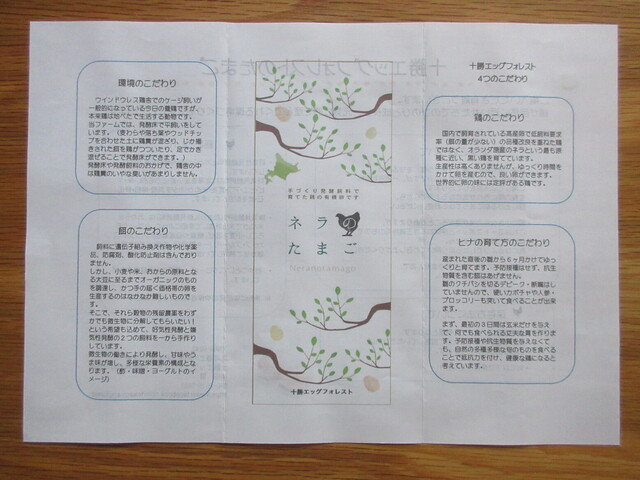 環境のこだわり
ウインドウレス鶏舎でのケージ飼いが
一般的になっている今日の養鶏ですが、
本来鶏は地べたで生活する動物です。
当ファームでは、発酵床で平飼いをして
います。(麦わらや落ち葉やウッドチップ
を合わせた土に鶏糞が混ざり、じか撒
きされた餌を鶏がつついたり、足でかき
混ぜることで発酵床ができます。)
発酵床や発酵飼料のおかげで、鶏舎の中
は鶏糞のいやな臭いがありません。
餌のこだわり
飼料に遺伝子組み換え作物や化学薬
品、防腐剤、酸化防止剤は含んでおり
ません。
しかし、小麦や米、おからの原料とな
る大豆に至るまでオーガニックのもの
を調達し、かつ手の届く価格帯の卵を
生産するのはなかなか難しいもので
す。
そこで、それら穀物の残留農薬をわず
かでも微生物に分解してもらいたい!
という希望も込めて、好気性発酵と嫌
気性発酵の2つの飼料を一から手作り
しています。
微生物の働きにより発酵し、甘味やう
ま味が増し、多様な栄養素の構成とな
ります。(酢・味噌・ヨーグルトのイ
メージ)
手づくり発酵飼料で
育てた鶏の有精卵です
ネラの
たまご
十勝エッグフォレスト
十勝エッグフォレスト
4つのこだわり
鶏のこだわり
国内で飼育されている高産卵で低飼料要求
率(餌の量が少ない)の品種改良を重ねた鶏
ではなく、オランダ原産のネラという最も原
種に近い、黒い鶏を育てています。
生産性は高くありませんが、ゆっくり時間を
かけて卵を産むので、良い卵ができます。
世界的に卵の味には定評がある鶏です。
ヒナの育て方のこだわり
産まれた直後の雛から6ヶ月かけてゆっ
くりと育てます。予防接種はせず、抗生
物質を含む餌はあげません。
雛のクチバシを切るデビーク・断嘴はし
ていませんので、硬いカボチャや人参・
ブロッコリーも突いて食べることが出来
ます。
まず、最初の3日間は玄米だけを与え
て、何でも食べられる丈夫な胃を作りま
す。予防接種や抗生物質を与えなくて
も、自然の多種多様な旬のものを食べる
ことで抵抗力を付け、健康な鶏になると
考えています。